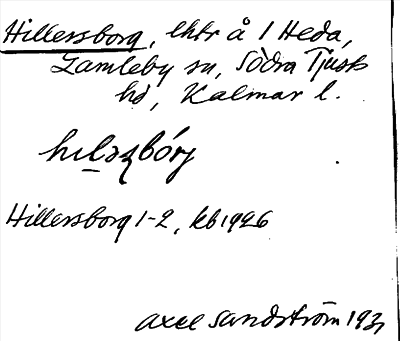 Hillersborg, lhtr å 1 Heda,
Gamleby sn, Södra Tjusts
hd, Kalmar l.
hɩləʂbórj
Hillersborg 1-2, kb 1926
Axel Sandström 1931